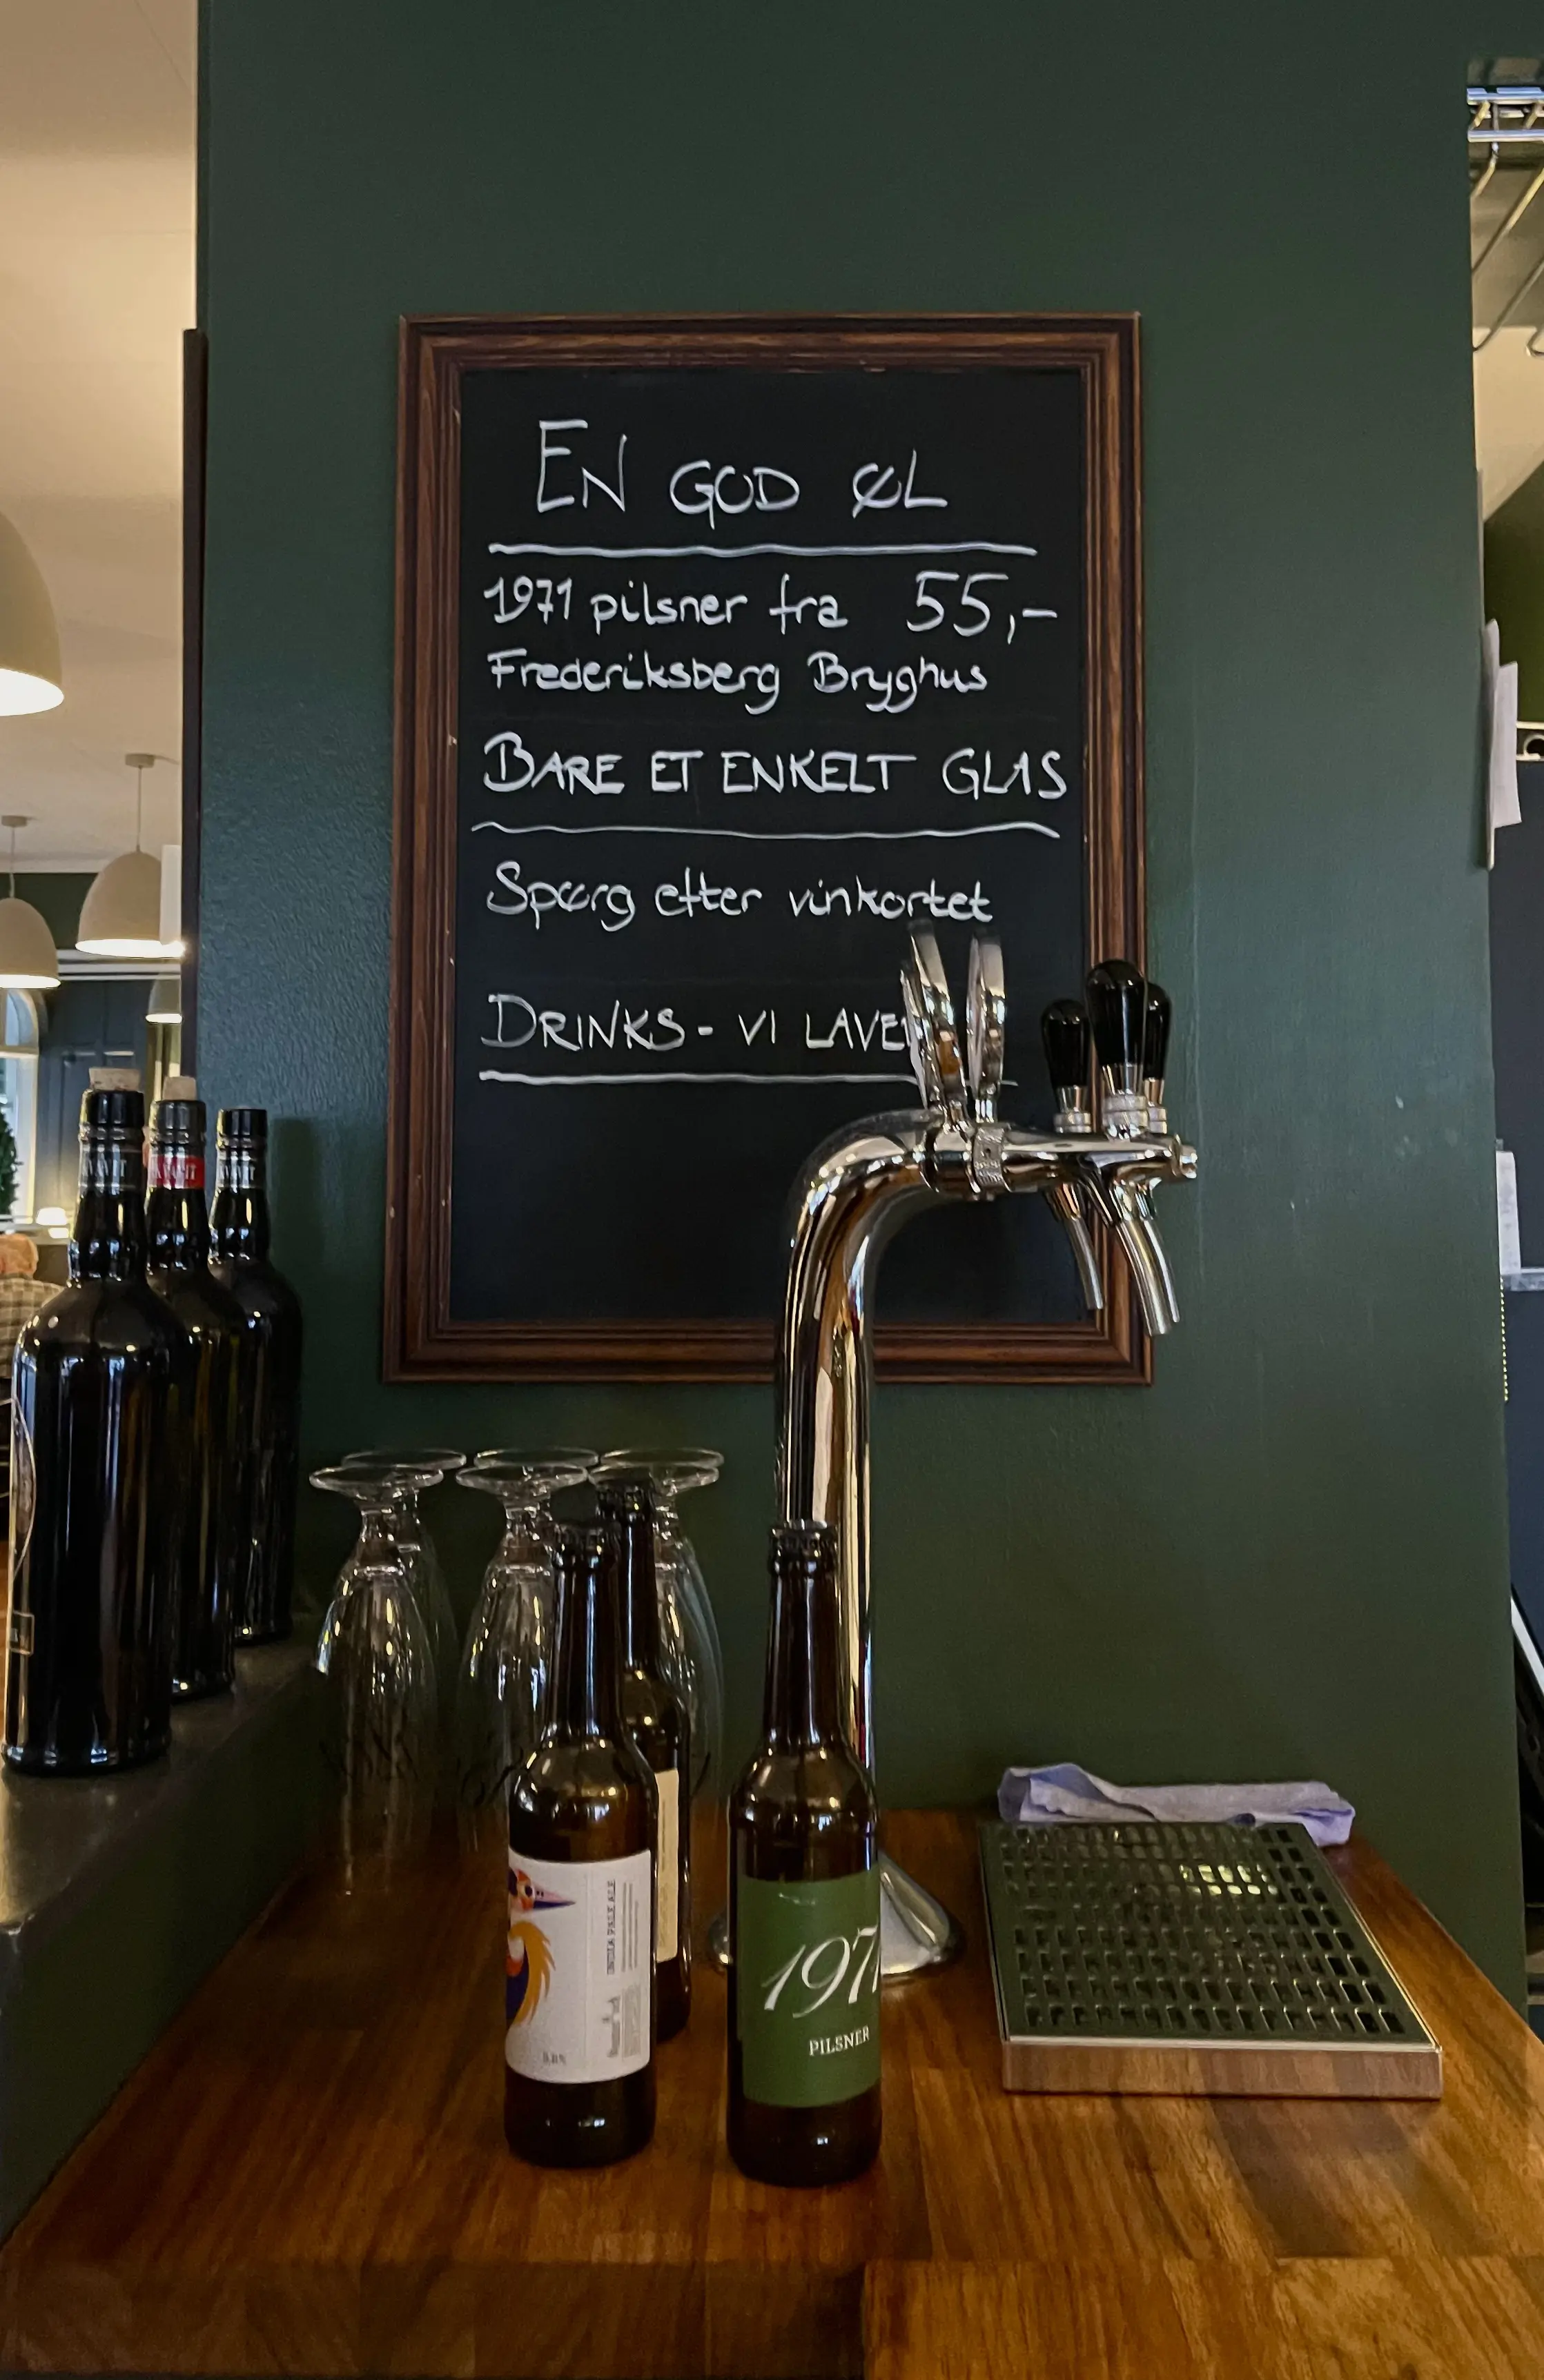 EN GOD ØL
1971 pilsner fra 55,-
Frederiksberg Bryghus
BARE ET ENKELT GLAS
Spørg efter vinkortet
DRINKS - VI LAVER
INDIA PALE ALE
1971
PILSNER